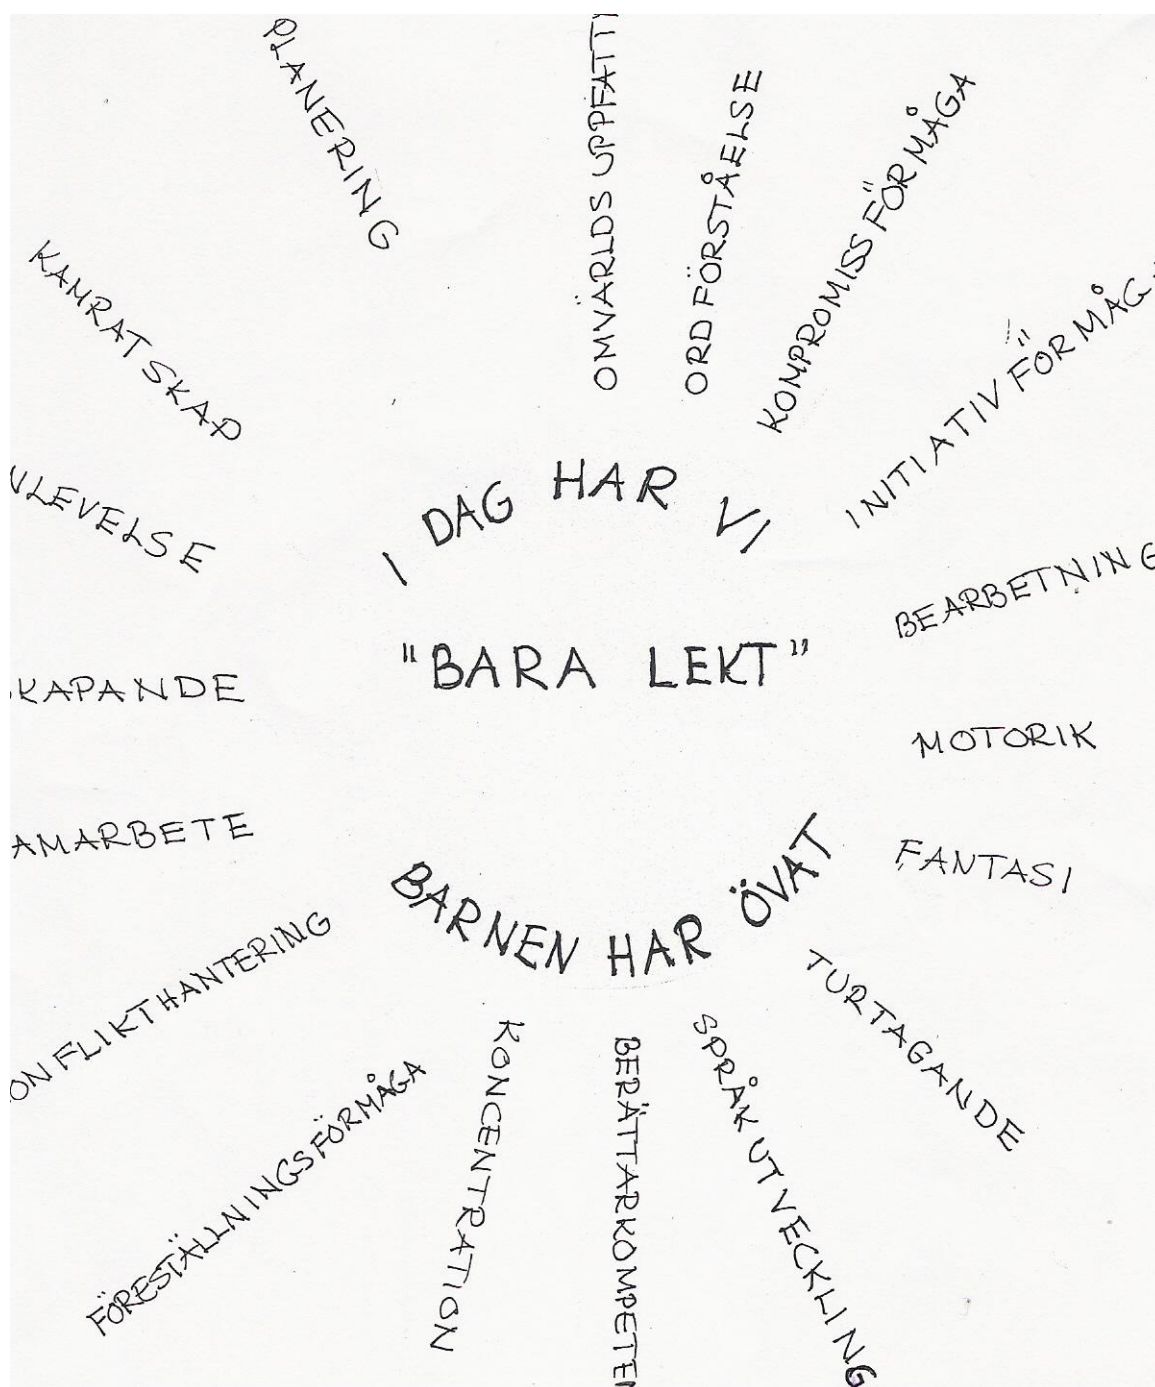 I DAG HAR VI
"BARA LEKT"
BARNEN HAR ÖVAT
PLANERING
OMVÄRLDS UPPFATT
ORDFÖRSTÅELSE
KOMPROMISS FÖRMÅGA
INITIATIV FÖRMÅG
BEARBETNING
MOTORIK
FANTASI
TURTAGANDE
SPRÅKUTVECKLING
BERÄTTARKOMPETE
KONCENTRATION
FÖRESTÄLLNINGSFÖRMÅGA
ONFLIKTHANTERING
AMARBETE
KAPANDE
NLEVELSE
KAMRATSKAP